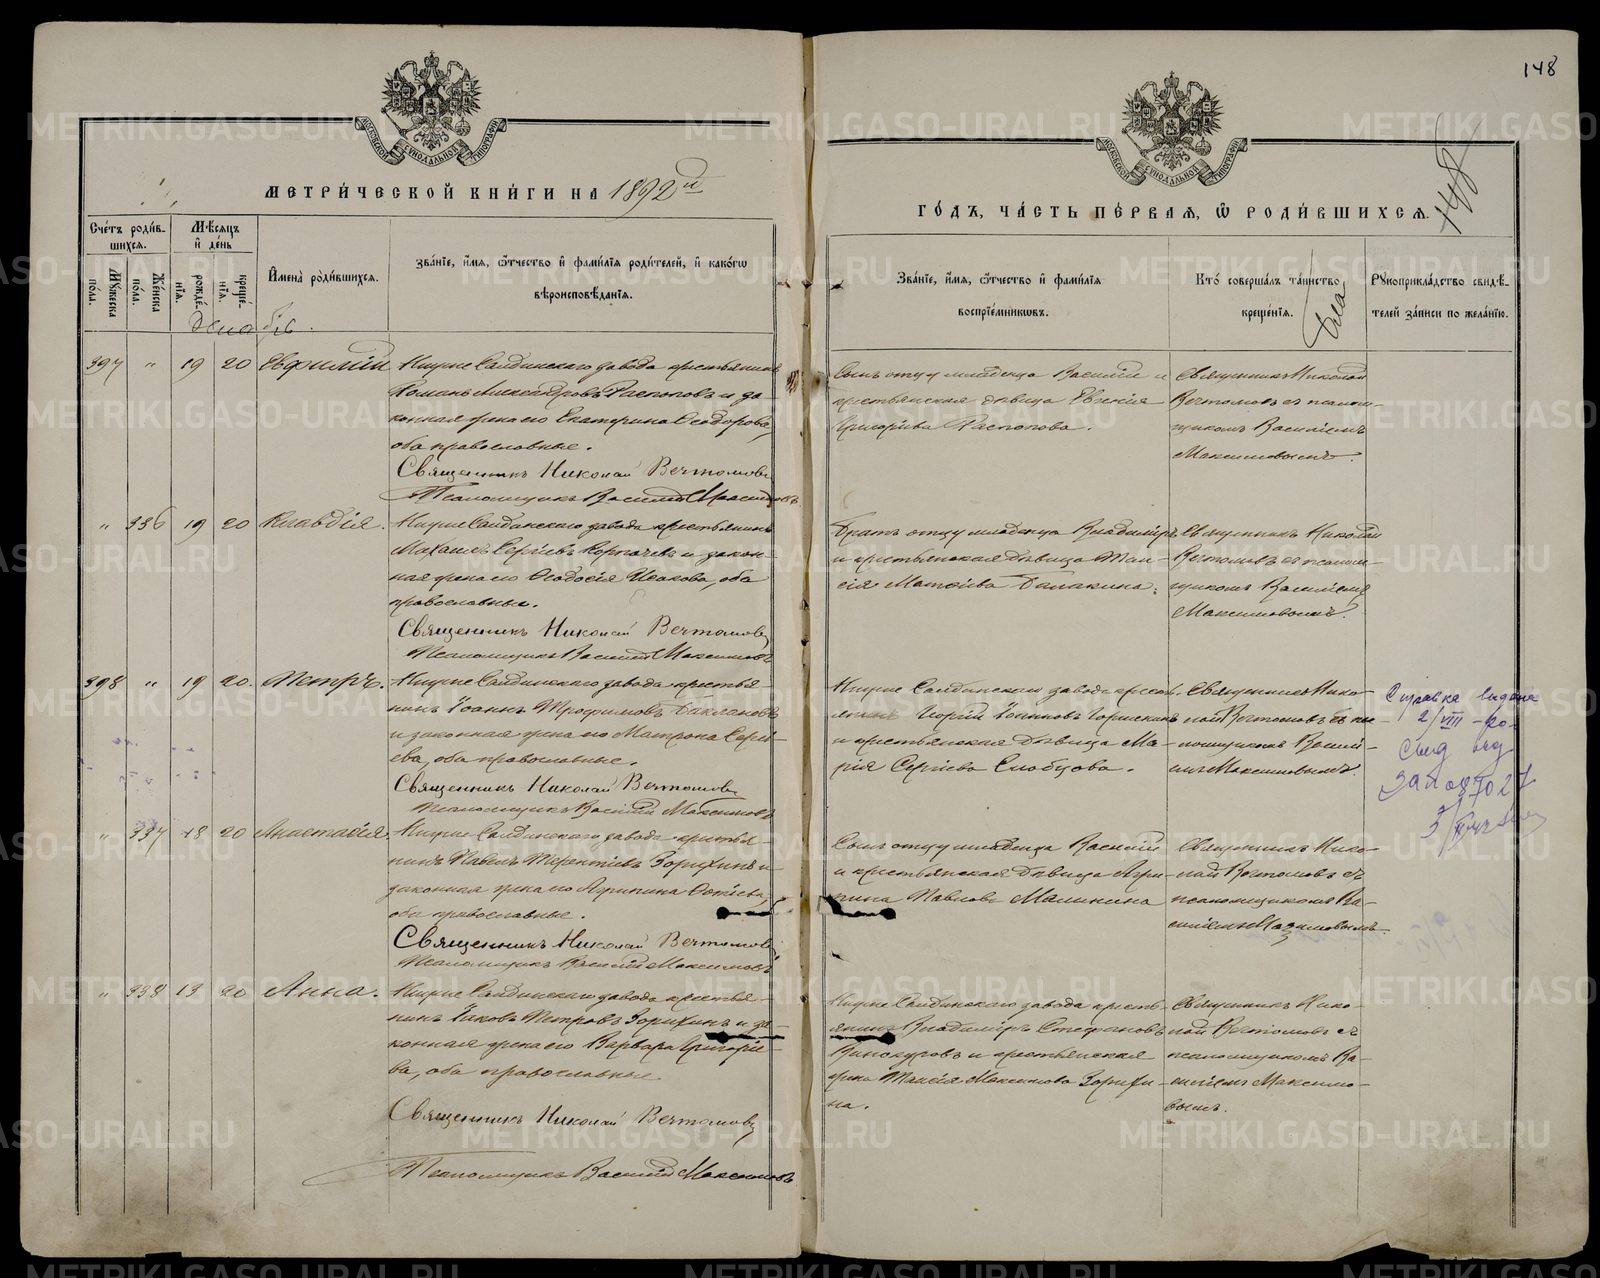 148
148
МОСКОВСКОЙ СУНОДАЛЬНОЙ ТИПОГРАФІИ
МОСКОВСКОЙ СУНОДАЛЬНОЙ ТИПОГРАФІИ
МЕТРИ́ЧЕСКОЙ КНИ́ГИ НА 1892й
ГО́ДЪ, ЧА́СТЬ ПЕ́РВАЯ, Ѡ РОДИ́ВШИХСЯ.
Сче́тъ роди́в-
шихся.
Му́жеска
по́ла.
Же́нска
по́ла.
Мѣ́сяцъ
и̂ де́нь
рожде́-
нїя.
креще́-
нїя.
Имена̀ роди́вшихся.
Зва́нїе, и́мя, ѻ́тчество и̂ фами́лїя роди́телей, и̂ како́гѡ
вѣроисповѣ́данїя.
Зва́нїе, и́мя, ѻ́тчество и̂ фами́лїя
воспрїе́мниковъ.
Кто̀ соверша́лъ та́инство
креще́нїя.
Рꙋкоприкла́дство свидѣ́-
телей за́писи по жела́нїю.
Декабрь.
397 " 19 20 Евфимій Нижне Салдинскаго завода крестьянинъ
Романъ Александровъ Распоповъ и за-
конная жена его Екатерина Ѳеодорова,
оба православные.
Священникъ Николай Вечтомовъ
Псаломщикъ Василій Максимовъ
Сынъ отцу младенца Василій и
крестьянская дѣвица Евгенія
Григоріева Распопова.
Священникъ Николай
Вечтомовъ съ псалом-
щикомъ Василіемъ
Максимовымъ.
" 336 19 20 Клавдія. Нижне Салдинскаго завода крестьянинъ
Сергіевъ и закон-
ная жена его Ѳеодосія Исакова, оба
православные.
Священникъ Николай Вечтомовъ
Псаломщикъ Василій Максимовъ
Братъ отцу младенца Владиміръ
и крестьянская дѣвица Таи-
сія Матѳіева Балакина.
Священникъ Николай
Вечтомовъ съ псалом-
щикомъ Василіемъ
Максимовымъ.
398 " 19 20. Петръ. Нижне Салдинскаго завода крестья-
нинъ Іоаннъ Трофимовъ Баклановъ
и законная жена его Матрона Сергі-
ева, оба православные.
Священникъ Николай Вечтомовъ
Псаломщикъ Василій Максимовъ
Нижне Салдинскаго завода кресть-
янинъ Георгій
и крестьянская дѣвица Ма-
рія Сергіева Слобцова.
Священникъ Нико-
лай Вечтомовъ съ пса-
ломщикомъ Васи-
емъ Максимовымъ.
Справка выдана
2/VIII
" 337 18 20 Анастасія. Нижне Салдинскаго завода крестья-
нинъ Павелъ Терентіевъ Зорихинъ и
законная жена его Агрипина Фотіева,
оба православные.
Священникъ Николай Вечтомовъ
Псаломщикъ Василій Максимовъ
Сынъ отцу младенца Василій
и крестьянская дѣвица Агри-
пина Павлова Малинина
Священникъ Нико-
лай Вечтомовъ съ
псаломщикомъ Ва-
силіемъ
" 338 13 20 Анна. Нижне Салдинскаго завода крестья-
нинъ Іаковъ Петровъ Зорихинъ и за-
конная жена его Варвара Григорі-
ва, оба православные
Священникъ Николай Вечтомовъ
Псаломщикъ Василій Максимовъ
Нижне Салдинскаго завода кресть-
янинъ Владиміръ Стефановъ
Винокуровъ и крестьянская
жена Таисія Максимова Зорихи-
на.
Священникъ Нико-
лай Вечтомовъ съ
псаломщикомъ Ва-
силіемъ Максимо-
вымъ.
METRIKI.GASO-URAL.RU